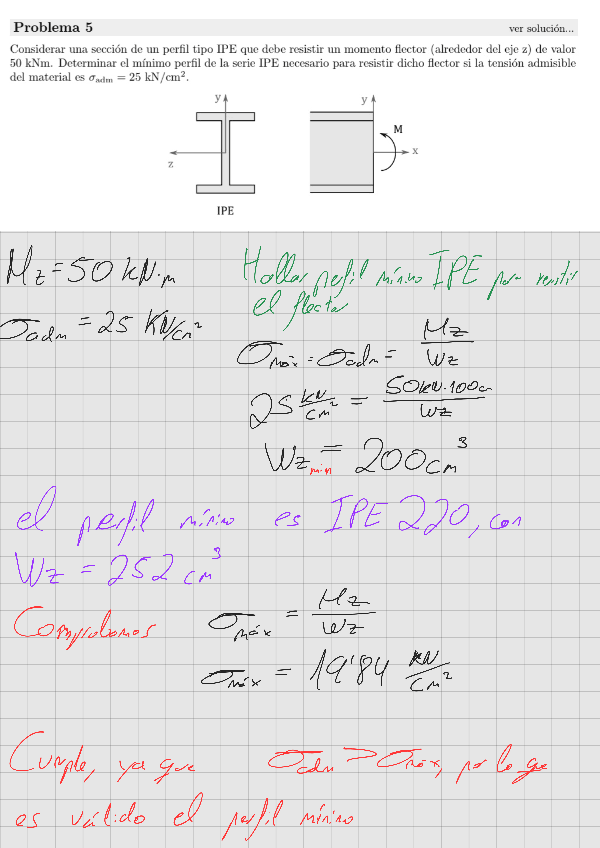 Problema 5
ver solución...
Considerar una sección de un perfil tipo IPE que debe resistir un momento flector (alrededor del eje z) de valor
50 kNm. Determinar el mínimo perfil de la serie IPE necesario para resistir dicho flector si la tensión admisible
del material es σadm = 25 kN/cm².
y
y
M
z
x
IPE
Mz = 50 kN·m
Hallar perfil mínimo IPE para resistir
el flector
σadm = 25 KN/cm²
σmáx = σadm = Mz/Wz
25 kN/cm² = 50kN·100cm/Wz
Wz min = 200 cm³
el perfil mínimo es IPE 220, con
Wz = 252 cm³
Comprobamos
σmáx = Mz/Wz
σmáx = 19'84 kN/cm²
Cumple, ya que σadm > σmáx, por lo que
es válido el perfil mínimo